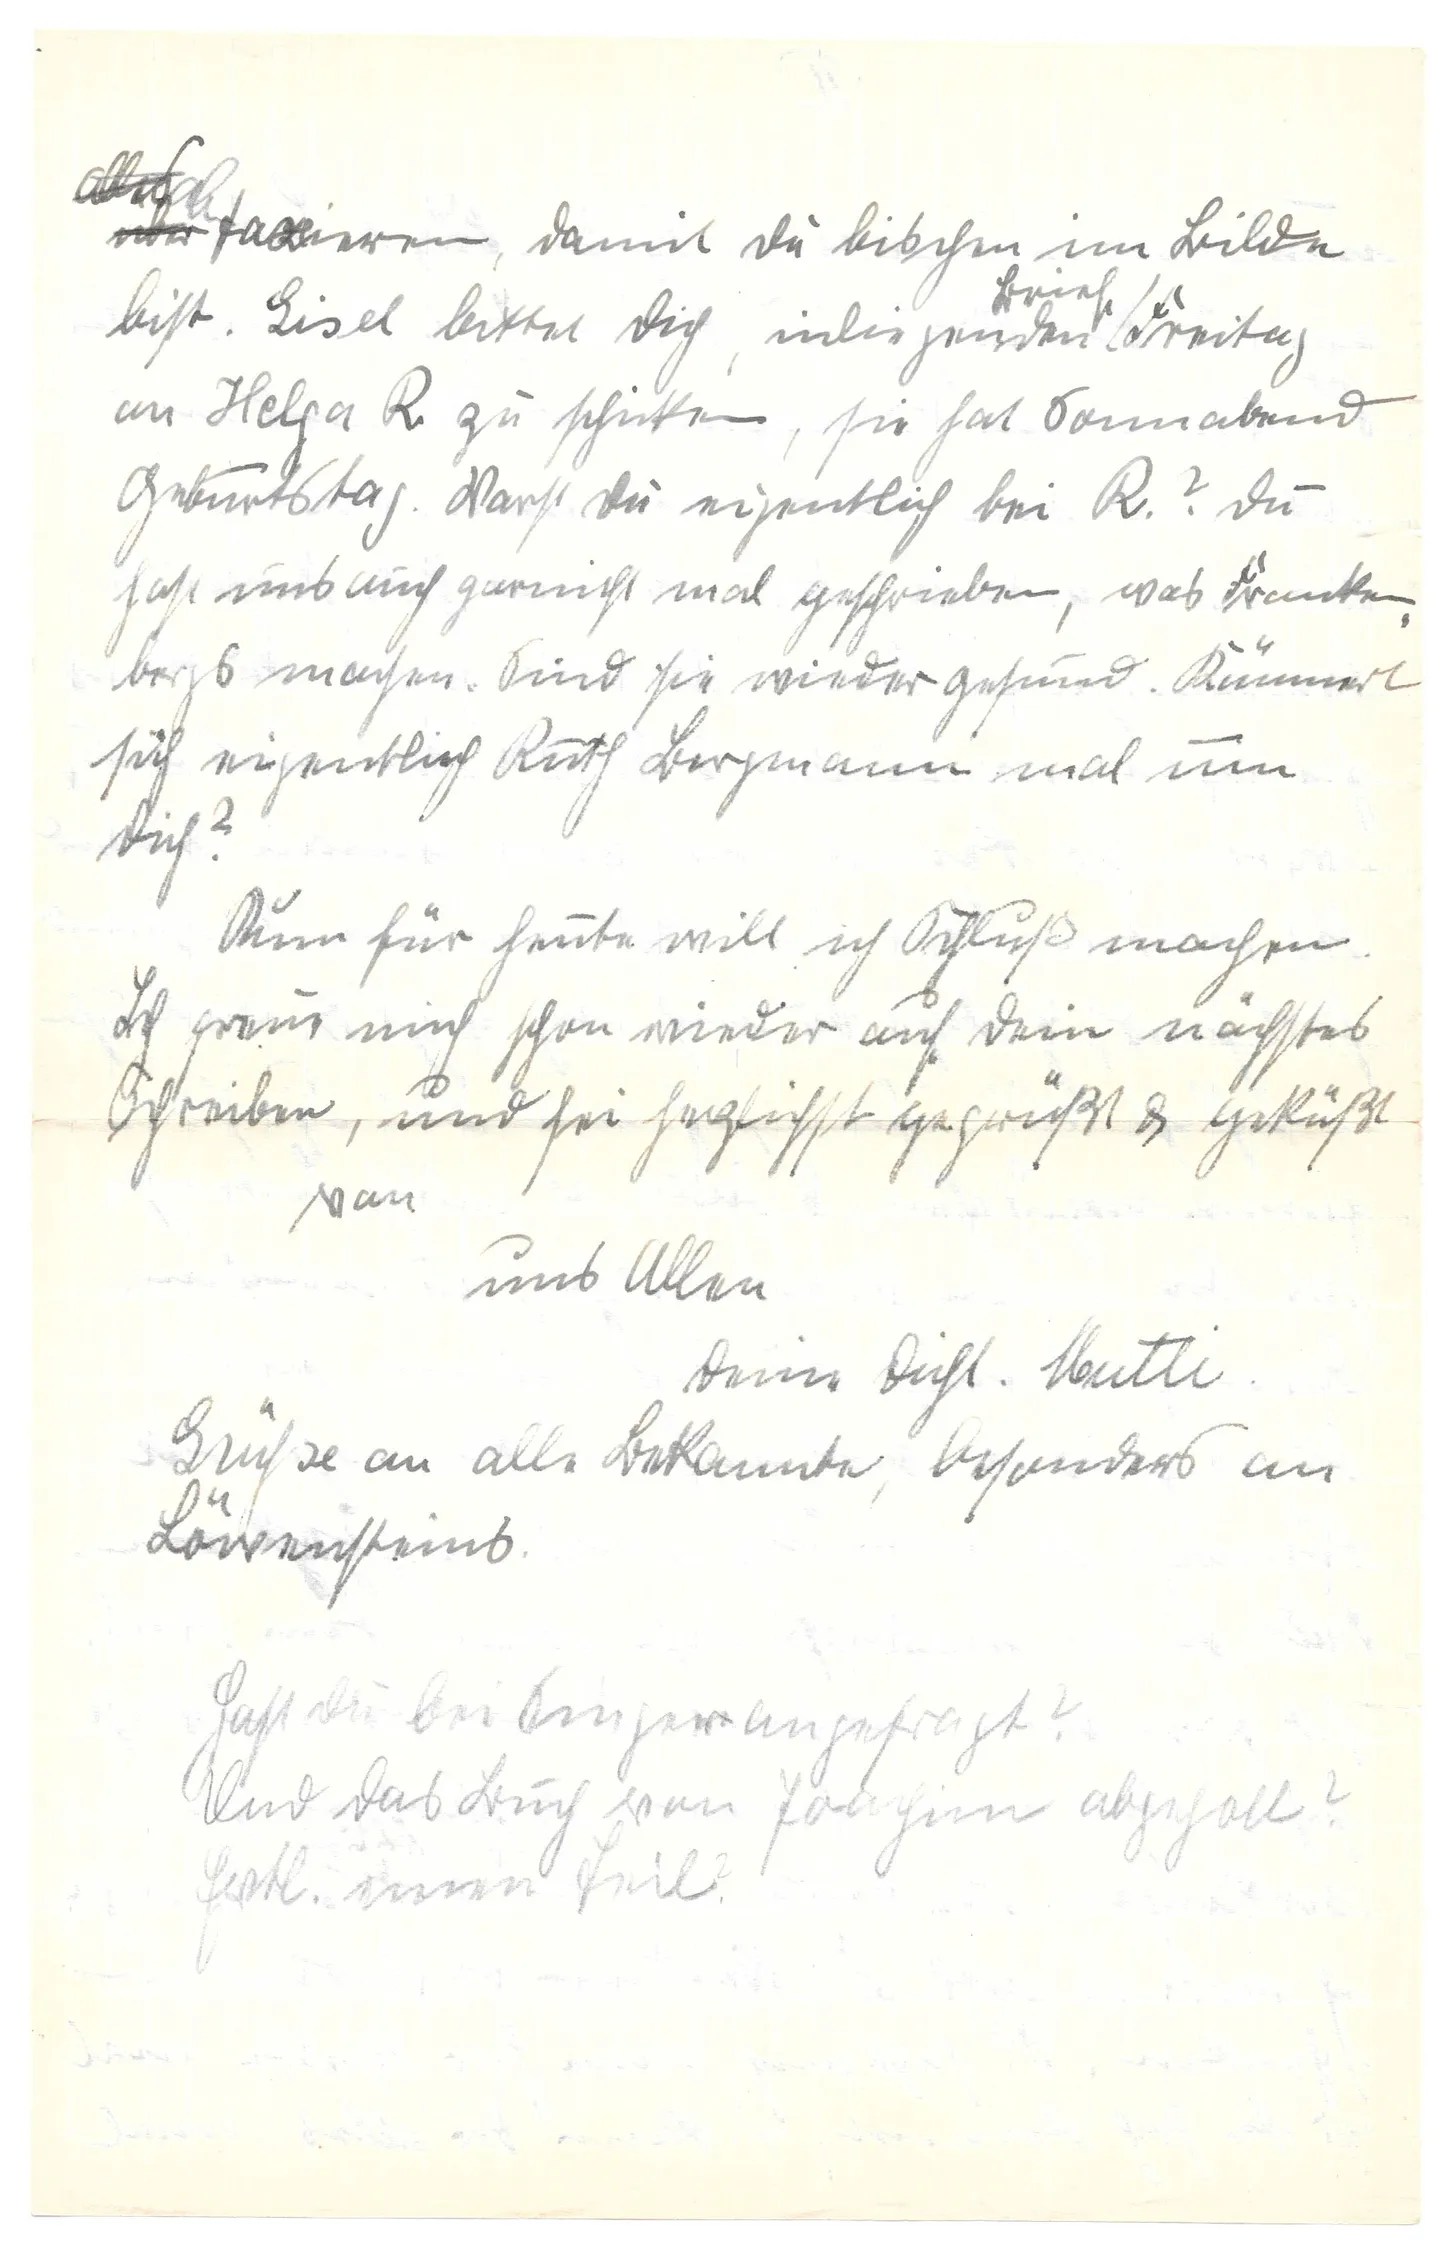 taxieren, damit Du bischen im Bilde
bist. Gisel bittet Dich, inliegenden Brief Freitag
an Helga R. zu schicken, sie hat Sonnabend
Geburtstag. Warst Du eigentlich bei R.? Du
hast uns auch garnicht mal geschrieben, was Franken-
bergs machen. Sind sie wieder gesund. Kümmert
sich eigentlich Ruth Bergmann mal um
Dich?
Nun für heute will ich Schluß machen.
Ich freue mich schon wieder auf Dein nächstes
Schreiben, und sei herzlichst gegrüßt & geküßt
von
uns Allen
Deine Dichl. Mutti.
Grüsse an alle Bekannte, besonders an
Löwensteins.
Hast Du bei Singer angefragt?
Und das Buch von Joachim abgeholt?
evtl. einen Teil?